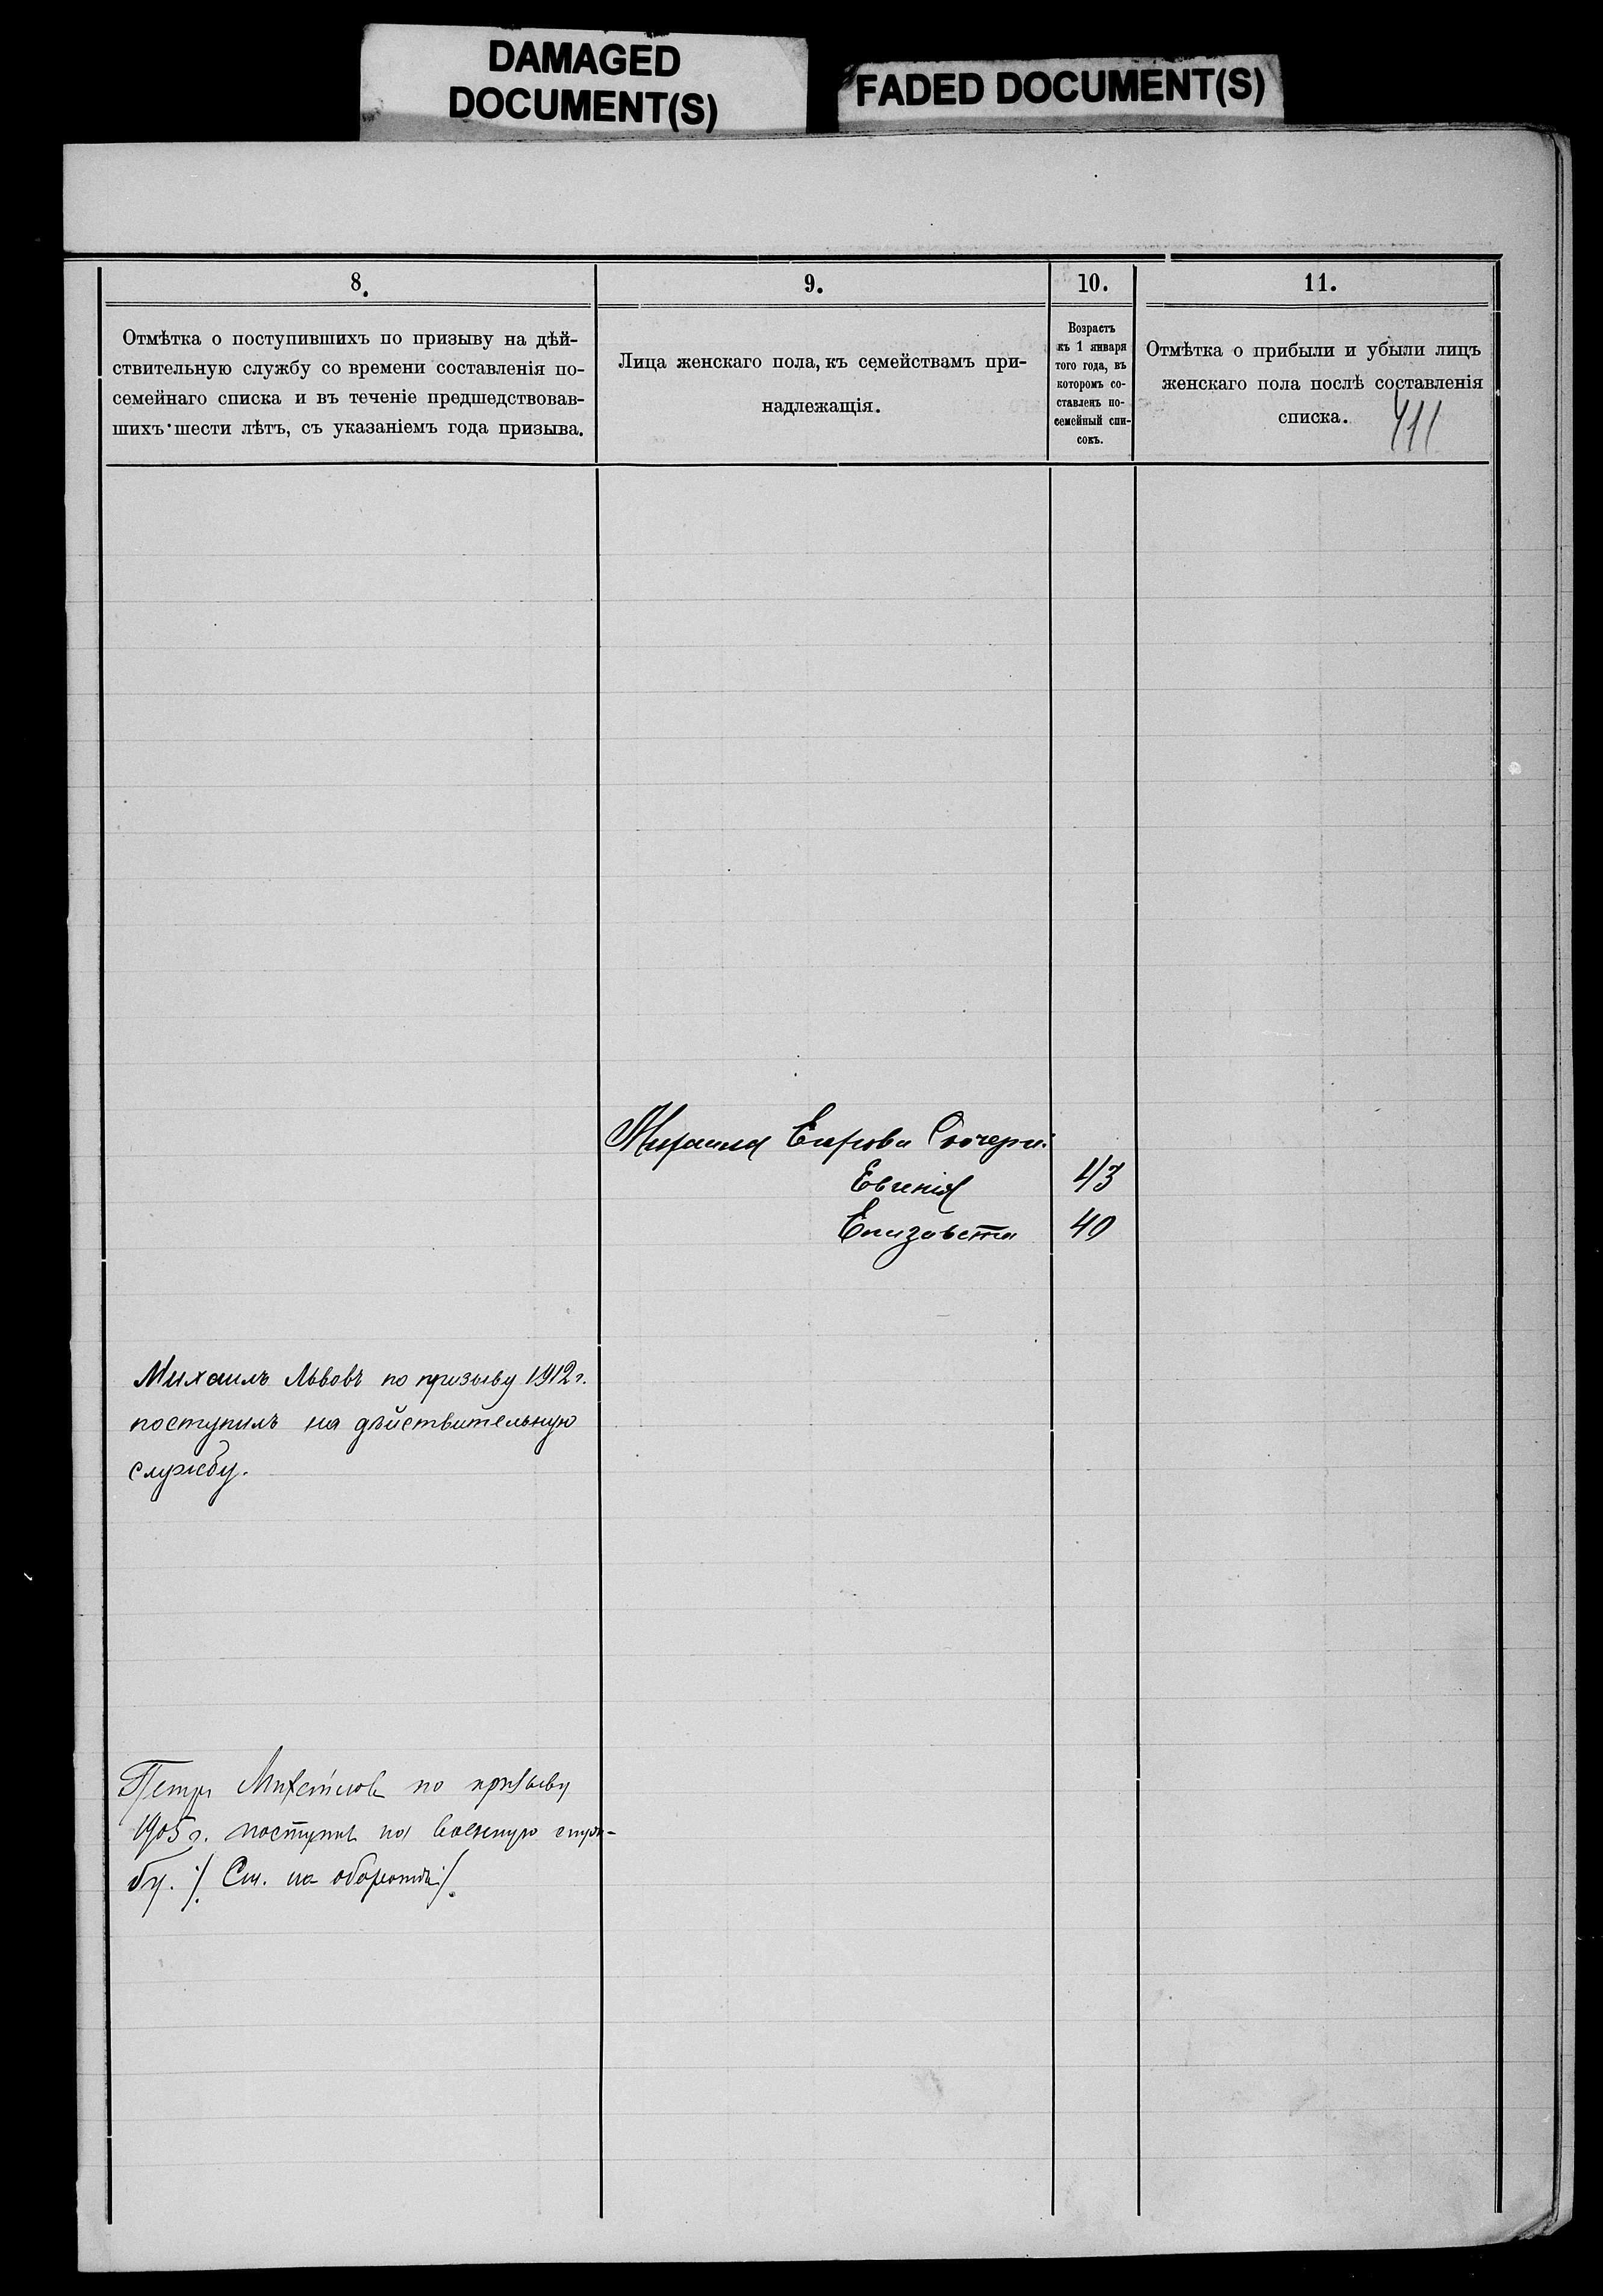 DAMAGED
DOCUMENT(S)
FADED DOCUMENT(S)
8.
Отмѣтка о поступившихъ по призыву на дѣй-
ствительную службу со времени составленія по-
семейнаго списка и въ теченіе предшедствовав-
шихъ шести лѣтъ, съ указаніемъ года призыва.
9.
Лица женскаго пола, къ семействамъ при-
надлежащія.
10.
Возрастъ
къ 1 января
того года, въ
которомъ со-
ставленъ по-
семейный спи-
сокъ.
11.
Отмѣтка о прибыли и убыли лицъ
женскаго пола послѣ составленія
списка.
411
Михаила дочери:
Евгенія 43
Елизавета 40
Михаилъ Львовъ по призыву 1912 г.
поступилъ на дѣйствительную
службу.
Петръ по призыву
1905 г. поступилъ на военную служ-
бу. /: См. на оборотѣ :/